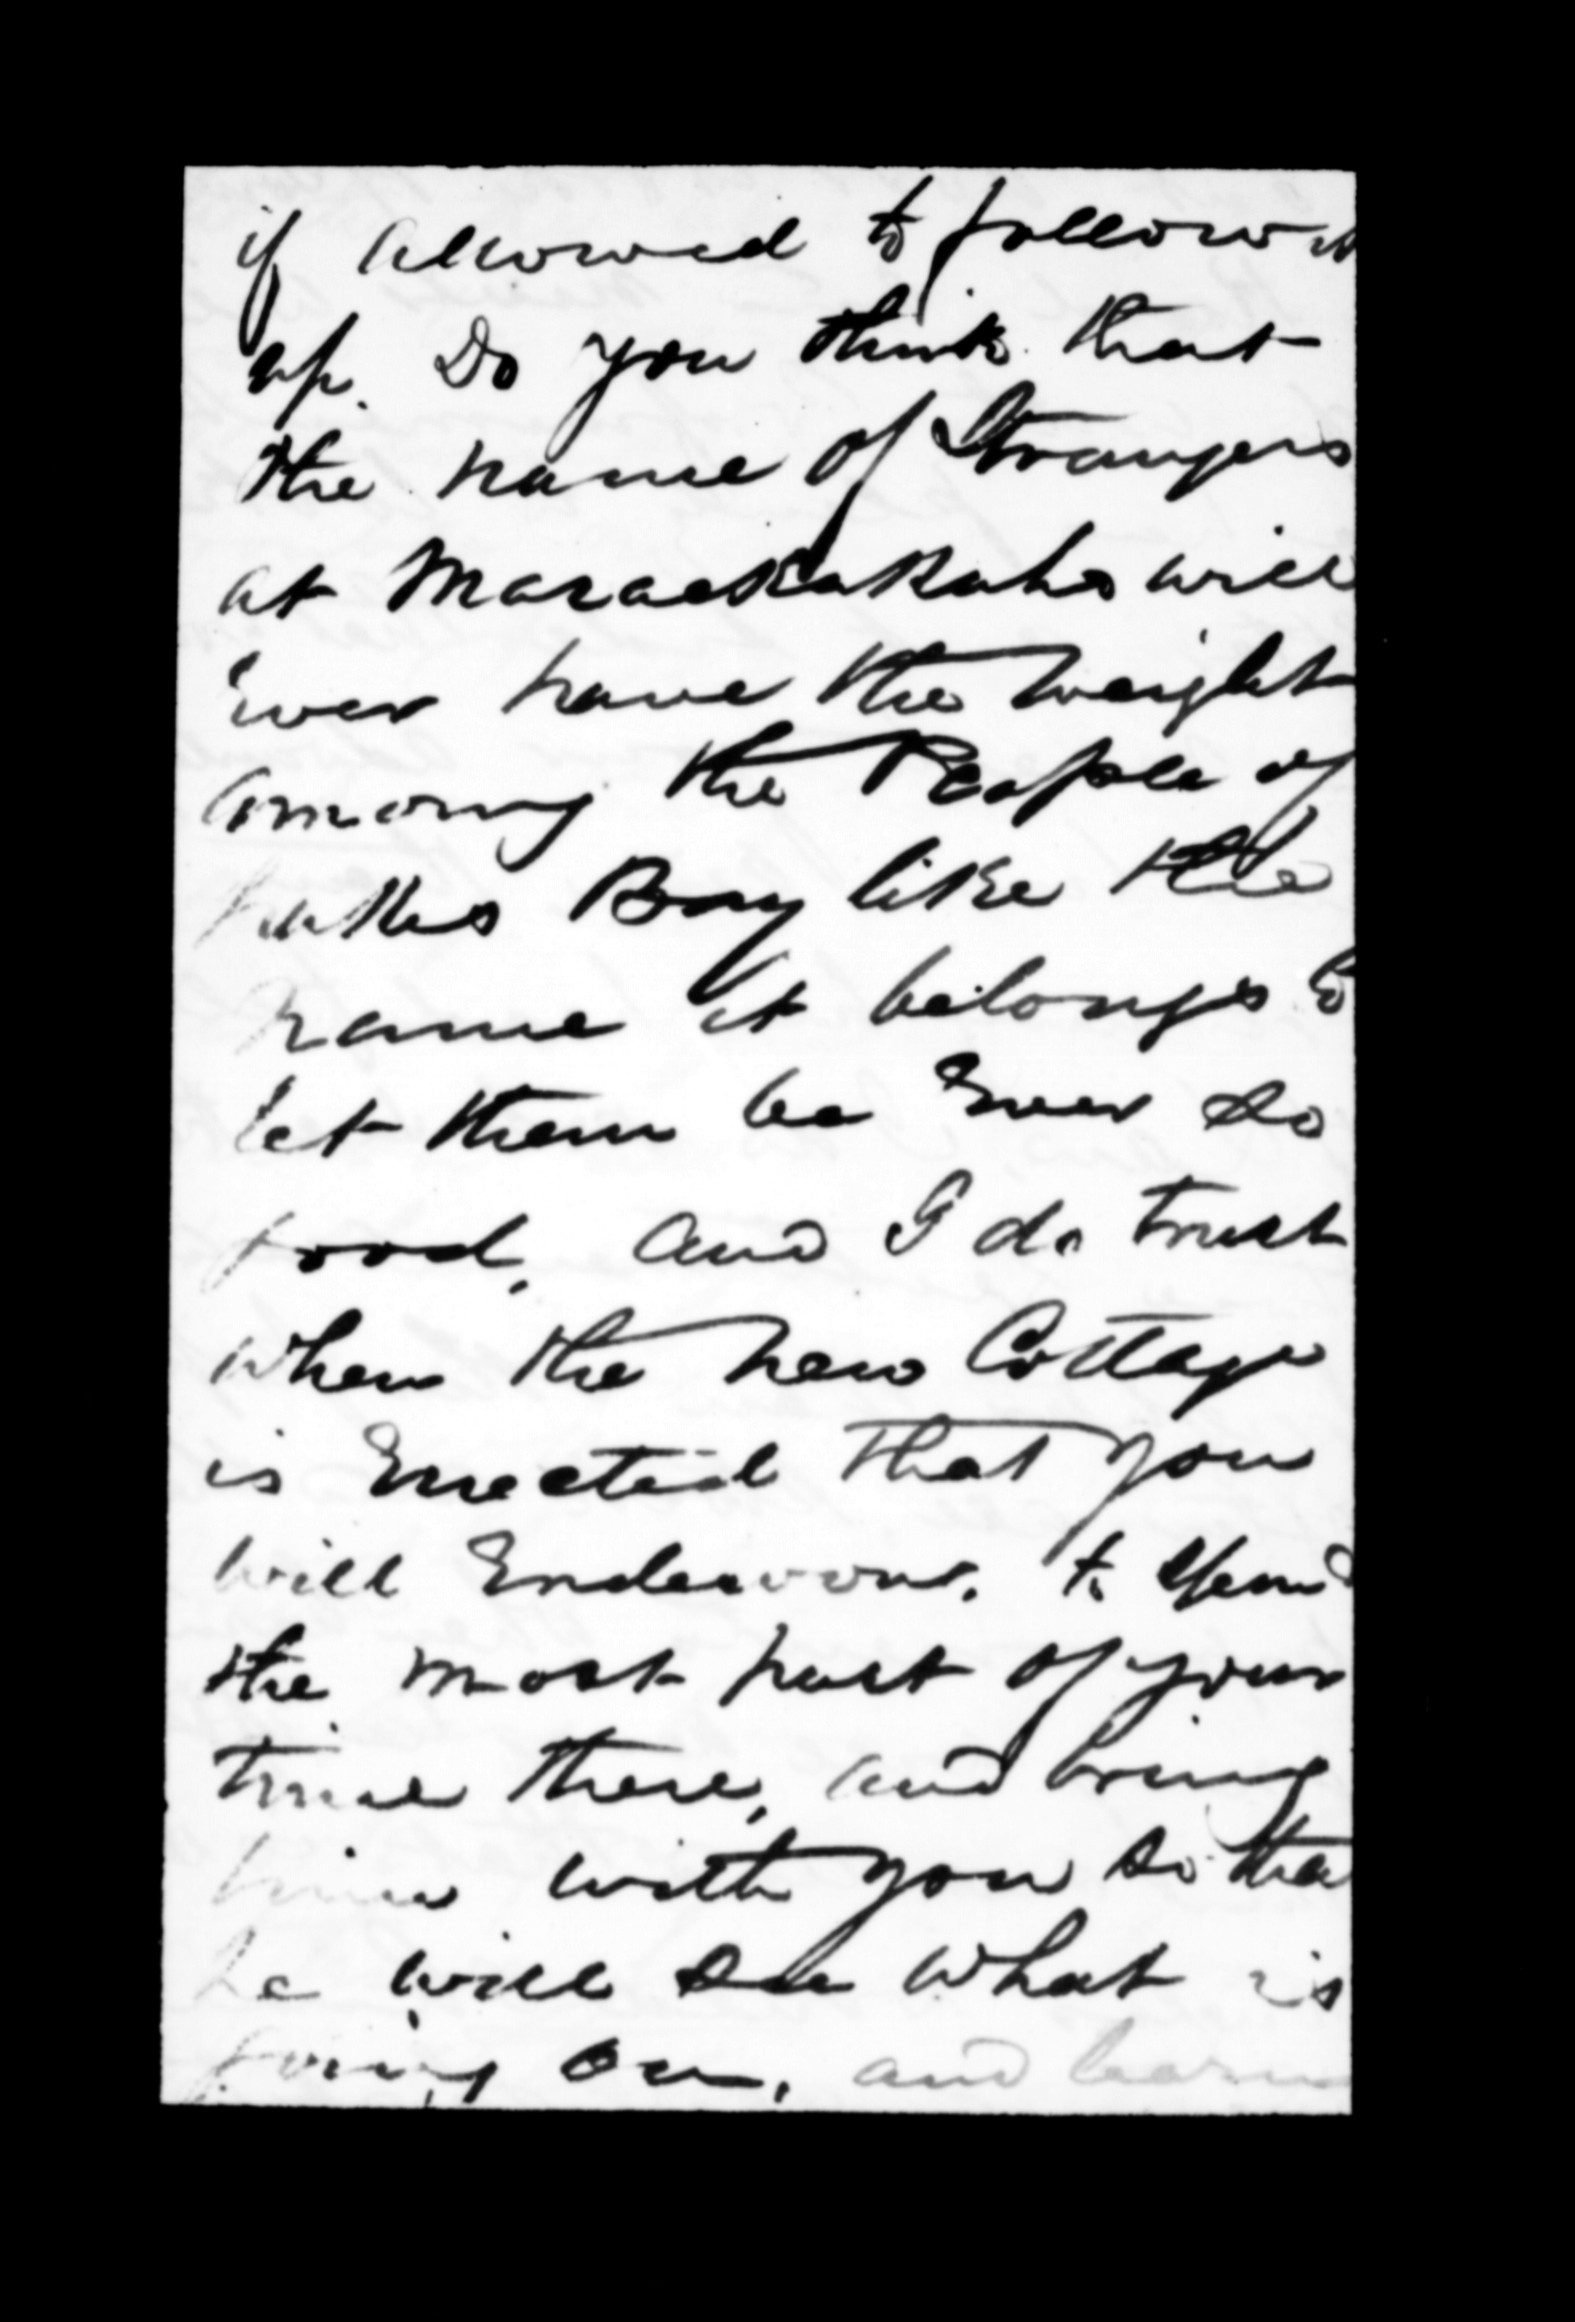 if allowed to follow it
up. Do you think that
the name of Strangers
at Maraekakaho will
Ever have the weight
among the People of
hakes Bay like the
name it belongs to
let them be Ever so
good, and I do trust
when the new Cottage
is Erected that you
will Endeavour. to spend
the most part of your
time there, and bring
him with you so tha
he will see what is
going on, and learn